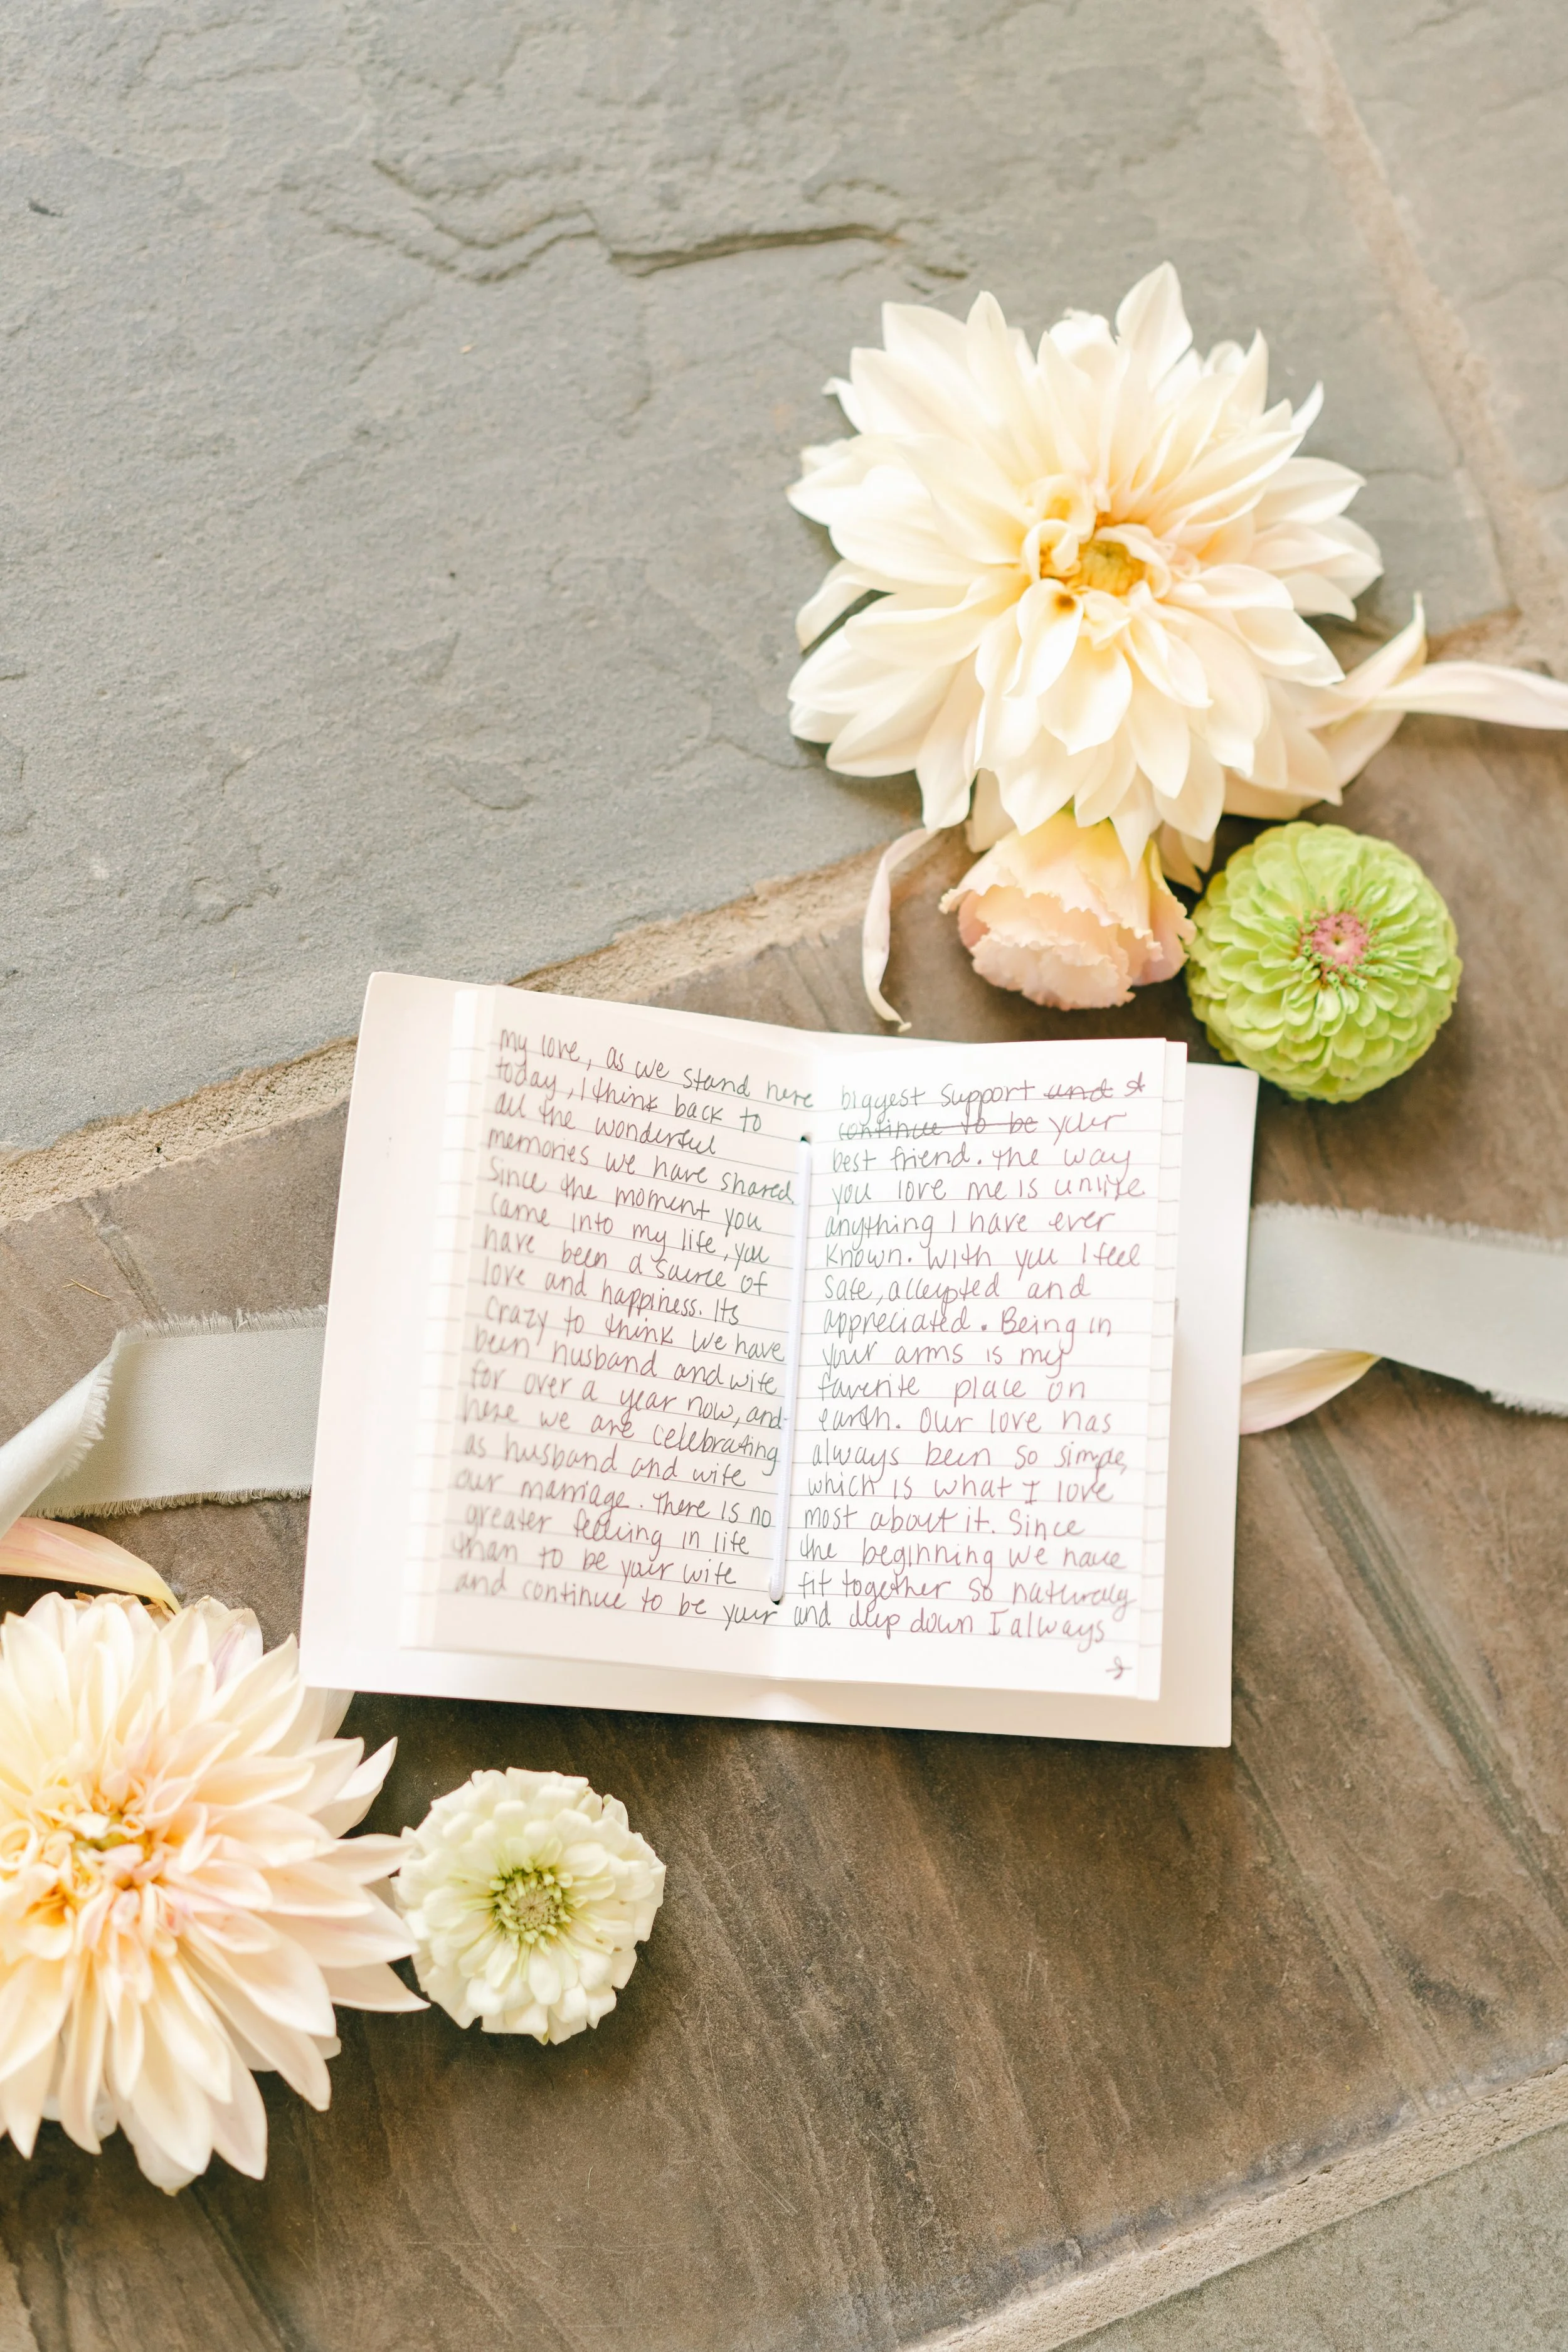 my love, as we stand here
today, I think back to
all the wonderful
memories we have shared
since the moment you
came into my life, you
have been a source of
love and happiness. Its
crazy to think we have
been husband and wife
for over a year now, and
here we are celebrating
as husband and wife
our marriage. There is no
greater feeling in life
than to be your wife
and continue to be your
biggest support and &
continue to be your
best friend. The way
you love me is unlike
anything I have ever
known. With you I feel
safe, accepted and
appreciated. Being in
your arms is my
favorite place on
earth. Our love has
always been so simple,
which is what I love
most about it. Since
the beginning we have
fit together so naturaly
and deep down I always